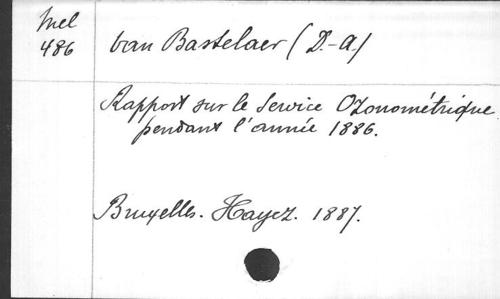 Mel
486
van Bastelaer (D.-A.)
Rapport sur le Service Ozonométrique
pendant l'année 1886.
Bruxelles. Hayez. 1887.